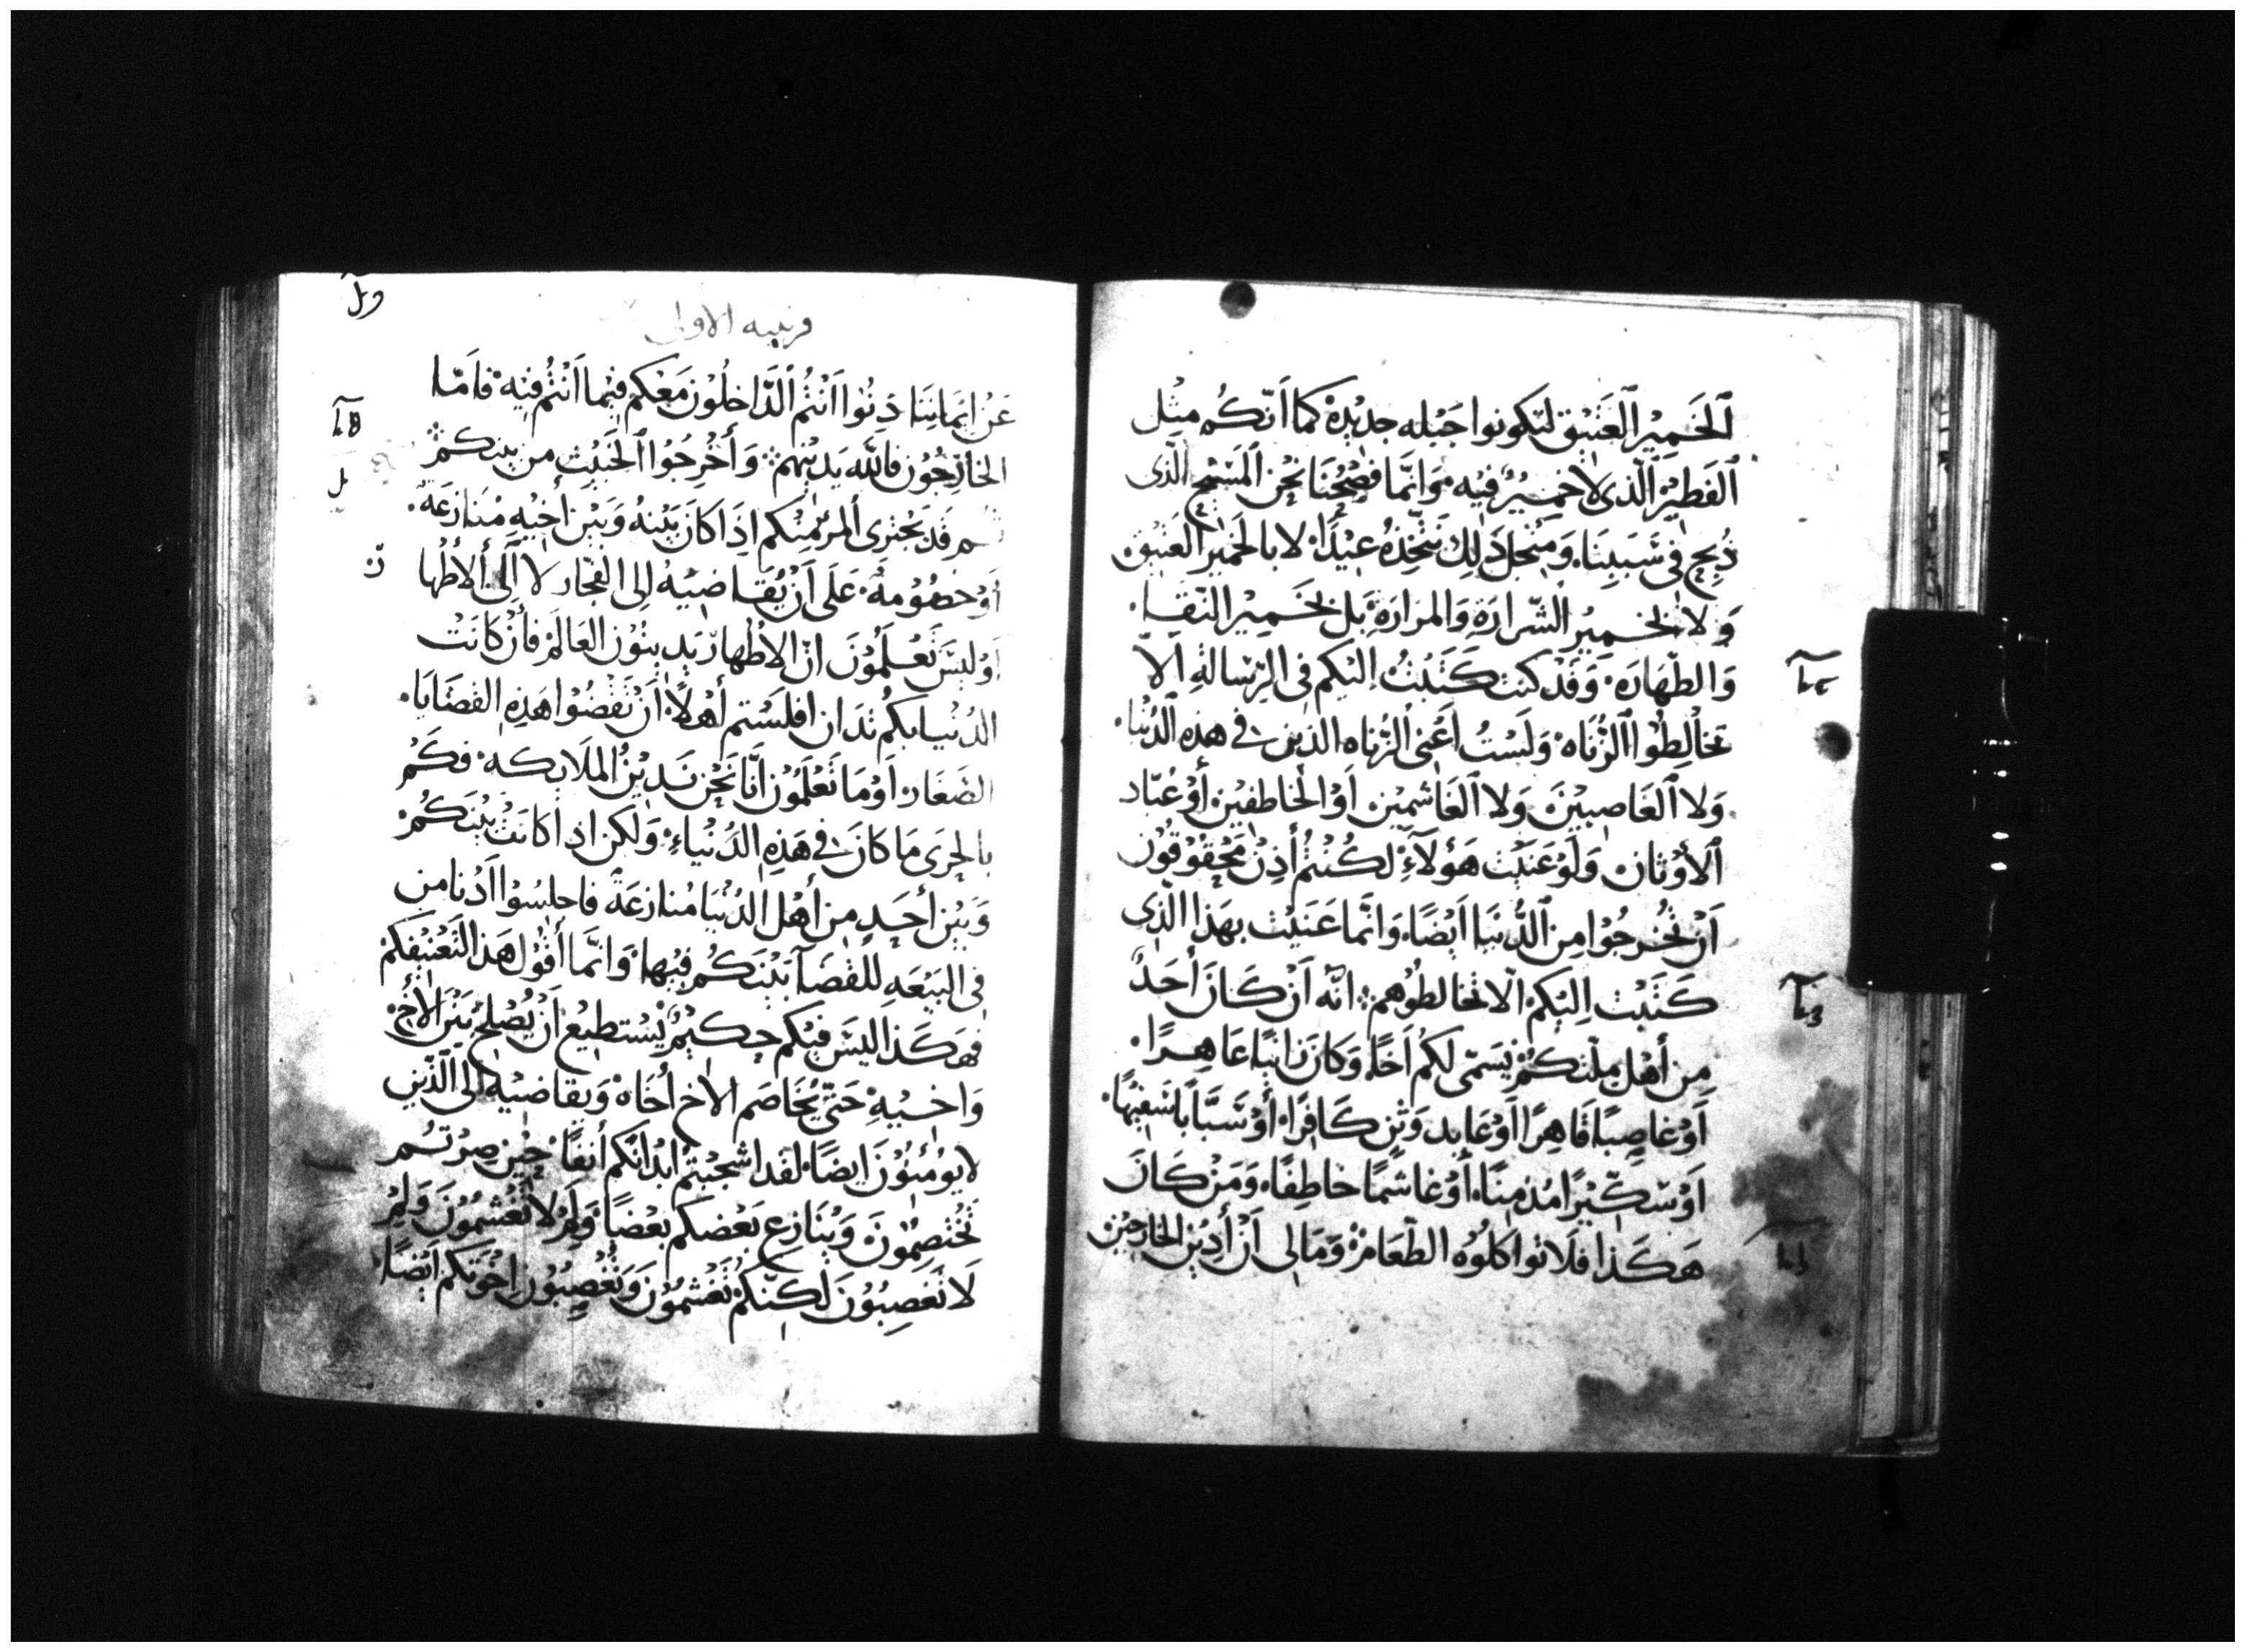 ٱلخَمِيْرَ ٱلعَتِيْق لتكونوا جَبْله جديْدة كما اَنّكُم مِثْل
ٱلفَطِيْر ٱلّذى لا خميْرٌ فيْه وَانَّما فِصْحُنَا نَحْن ٱلمَسْيح الّذى
ذُبِحَ فى سَبَبِنَا وَمِنْجل ذَلِكَ نتّخِذهُ عيْدًا لا بالخمير العَتيْق
وَلا بخميْر الشّرارَة وَالمرَارَة بَل بخَمِيْر النّقا
وَالطّهَارَة وَقَدْ كنت كَتَبْتُ اليْكم فى الرّسَالةِ اَلاّ
تخَالِطُوْا ٱلزُّنَاه وَلَسْتُ أعْنى الزّناه الذين فى هذه ٱلدُّنْيا
وَلا ٱلغَاصبيْن وَلا ٱلغَاشميْن اَوْ الخاطفيْن أوْ عُبّاد
ٱلأوْثان وَلَوْ عَنَيْت هَؤلآءِ لكُنْتُمْ أذِنْ مَحْقوْقوْن
اَنْ تخْرجُوْا مِن ٱلدُّنيَا اَيْضًا وَانَّما عَنَيْت بهَذا الّذى
كَتَبْت اِليْكم الاّ تخالطوُهم انّه اَنْ كَانَ أَحَدٌ
مِن أهْل مِلّتكُمْ يُسَمّى لكُم أَخًا وَكانَ زانيًا عَاهِرًا
اَوْ غَاصِبًا قَاهِرًا اَوْ عَابِد وَثنٍ كَافِرًا أوْ سَبَّابًا سَفيْهًا
اَوْ سِكّيْرًا مُدْمِنًا أَوْ غاشمًا خاطِفًا وَمَنْ كَانَ
هَكَذا فلَا تواكلوُه الطّعَام وَمَا لى اَنْ أدِيْن الخارجيْن
قرنتيه الاولى
عَنْ ايْمانِنا دِنُوْا اَنْتُم ٱلدَّاخلُوْن مَعْكم فيْما اَنْتُم فيْه فاَمّا
الخارِجُوْن فالله يَديْنهم وَأَخْرِجُوْا ٱلخَبيْث من بينكم
قَد يَجْترى ألمرْ مِنْكم اِذَا كانَ بَيْنهُ وَبَيْنَ أخِيْهِ مُنَازعَة
أوْ خصُوْمة عَلَى اَنْ يُقاضيْهُ اِلى الفجّار لا اِلَى ألاطْها
اَوْ ليْسَ تَعْلَمُوْنَ انّ الاطْهار يَديْنوْن العَالَمْ فأنْ كانَتْ
الدُنْيا بكم تدَان افلَسْتم أهْلاً اَنْ تَقْضُوْا هَذِه القضَايَا
الصّغَار اَوْ مَا تَعْلَمُوْن اَنّا نَحْن نَديْنُ الملَايكه فكَمْ
بالحَرَى مَا كانَ فى هَذِه الدُنْياء وَلكن اذا كانَتْ بَيْنَكُمْ
وَبَيْن أحَدٍ مِن أهْل الدُنْيَا مُنازعَةً فاجلسُوْا اَدْنا من
فى البيْعَه للقضَآ بَيْنَكُم فيْها وَانَّما أقُوْل هَذا لتَعْنِيْفكم
فهَكَذا ليْسَ فيْكم حِكيْمٌ يَسْتطيْع اَنْ يُصْلحُ بَيْنَ الأَخ
وَاخيْهِ حَتّى يُخَاصم الاخ أخَاهُ وَيقاضيْه الى ٱلّذين
لا يوْمنُوْنَ ايضًا لقد اشجبْتم ابْدانكم أنفًا حِيْن صِرْتم
تخْتصِمُوْنَ وَيُنَازع بَعْضكم بعْضًا وَلِمْ لا تُغْشمُوْنَ وَلِمْ
لَا تُغصَبُوْنَ لكِنّكُمْ تَغْشمُوْن وَتَغْصِبُوْن اخْوَتكم اَيْضًا